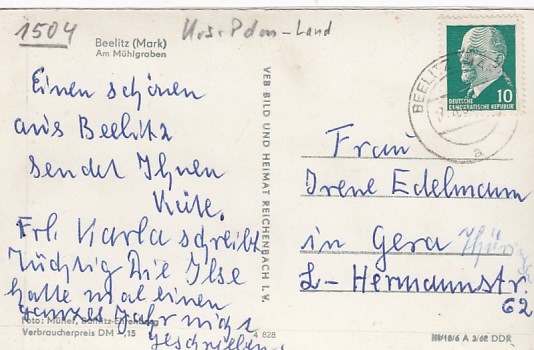 1504
Krs. Pdam-Land
Beelitz (Mark)
Am Mühlgraben
Einen schönen
aus Beelitz
sendet Ihnen
Käte.
Frl. Karla schreibt
tüchtig Die Ilse
hatte mal einen
ganzes Jahr nicht
geschrieben
Foto: Müller,
Verbraucherpreis DM -,15
4 828
VEB BILD UND HEIMAT REICHENBACH I. V.
10
DEUTSCHE
DEMOKRATISCHE REPUBLIK
BEELITZ
a
Frau
Irene Edelmann
in Gera Thüringen
L-Hermannstr
62
III/18/6 A 3/62 DDR